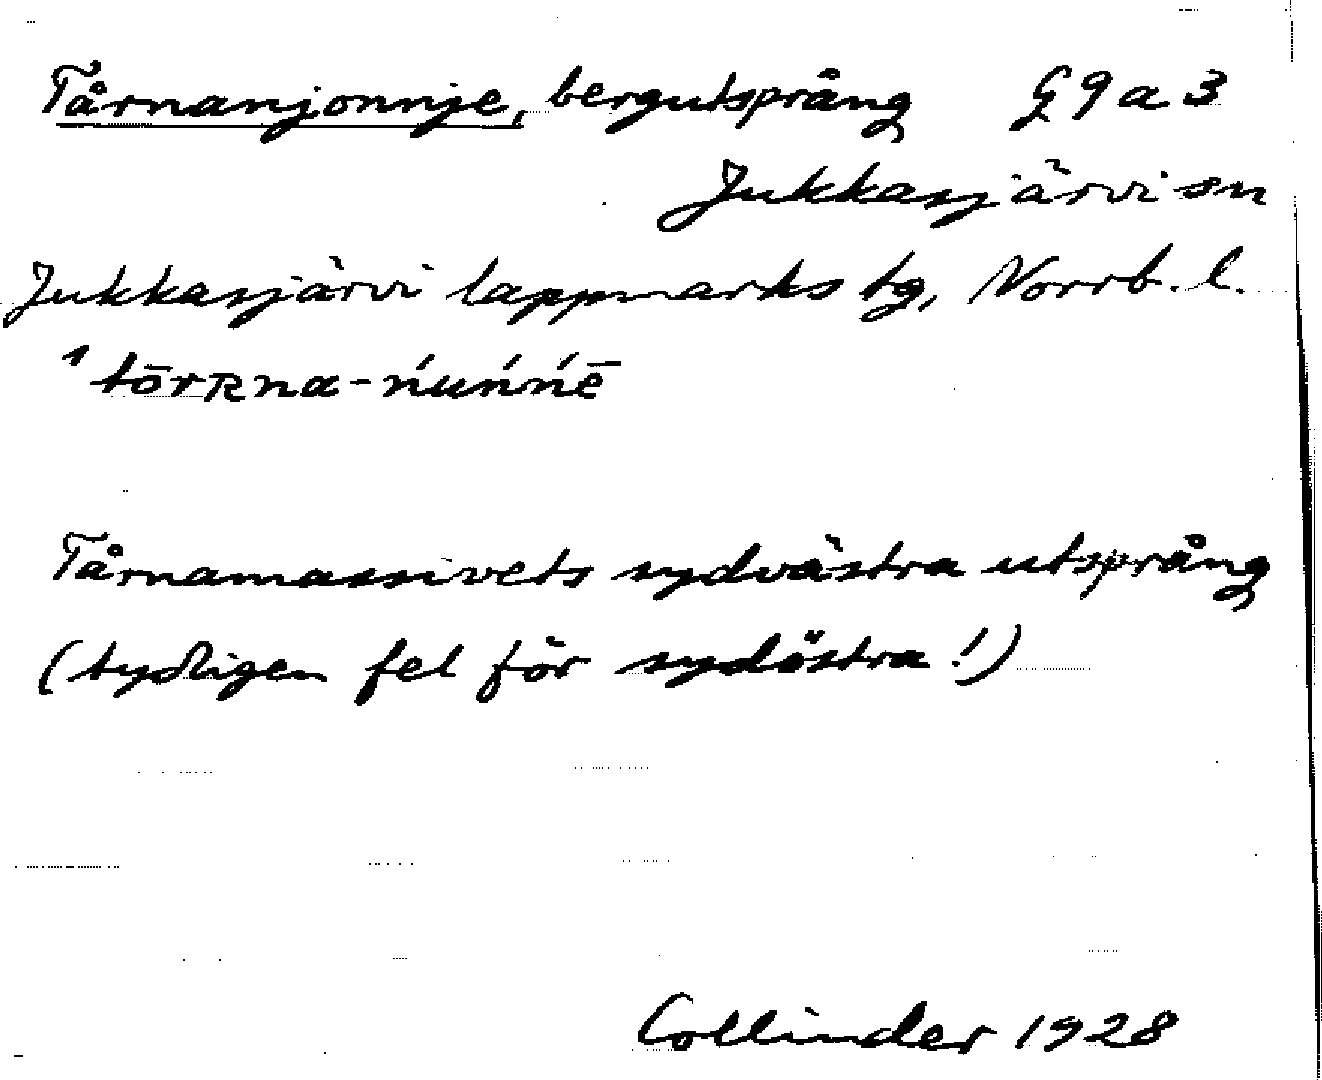 Tårnanjonnje, bergutsprång G9a3
Jukkasjärvi sn
Jukkasjärvi lappmarks tg, Norrb. l.
ˈtōrʀna-ńuńńē
Tårnamassivets sydvästra utsprång
(tydligen fel för sydöstra!)
Collinder 1928